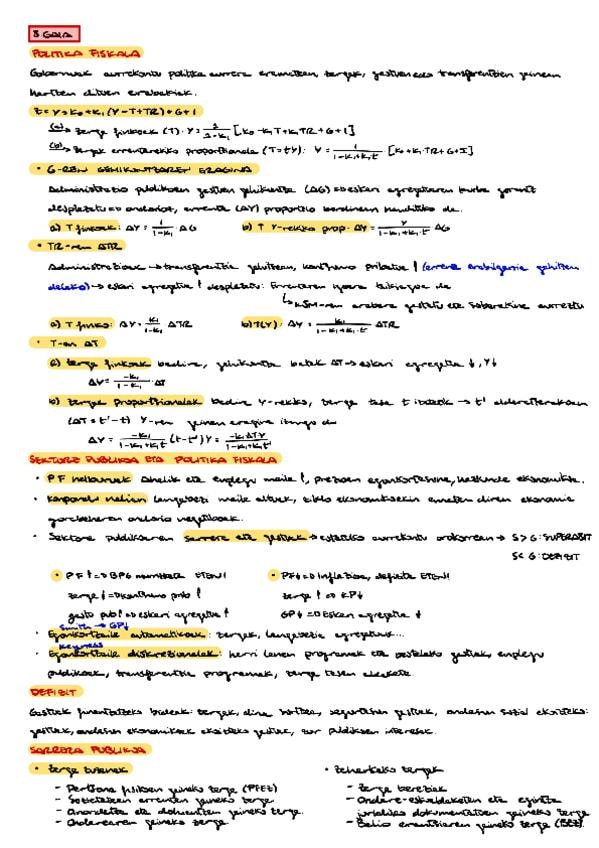 8 GAIA
POLITIKA FISKALA
Gobernuak aurrekontu politika aurrera eramateko, zergak, gastuen edo transferentzien gainean
hartzen dituen erabakiak.
Z = Y = K₀ + K₁ (Y - T + TR) + G + I
(a) → zerga finkoak (T) · Y = 1/(1-K₁) [K₀ - K₁T + K₁TR + G + I]
(b) → zergak errentarekiko proportzionala (T = tY): Y = 1/(1-K₁+K₁t) [K₀ + K₁·TR + G + I]
• G-REN GEHIKUNTZAREN ERAGINA
Administrazio publikoen gastuen gehikuntza (ΔG) => eskari agregatuaren kurba gorantz
desplazatu => ondorioz, errenta (ΔY) proportzio berdinean handituko da.
a) T finkoak: ΔY = 1/(1-K₁) · ΔG b) T Y-rekiko prop. ΔY = Y/(1-K₁+K₁·t) ΔG
• TR-ren ΔTR
Administrazioak → transferentzia gehitzean, kontsumo pribatua ↑ (errenta erabilgarria gehitzen
delako) → eskari agregatua ↑ desplazatu: Errentaren igoera txikiagoa da
↳ KSM-ren arabera gastatu eta soberakina aurreztu
a) T finko: ΔY = K₁/(1-K₁) ΔTR b) T(Y): ΔY = K₁/(1-K₁+K₁·t) ΔTR
• T-en ΔT
a) zerga finkoak badira, gehikuntza batek ΔT → eskari agregatua ↓, Y↓
ΔY = -K₁/(1-K₁) · ΔT
b) zergak proportzionalak badira Y-rekiko, zerga tasa t batetik → t' aldaratzerakoan
(ΔT = t' - t) Y-ren gainean eragina izango du
ΔY = -K₁/(1-K₁+K₁t) (t-t')Y = -K₁ΔTY/(1-K₁+K₁t')
SEKTORE PUBLIKOA ETA POLITIKA FISKALA
• PF helburuak: ahalik eta enplegu maila ↑, prezioen egonkortasuna, hazkunde ekonomikoa.
• langabezi maila altuak, ziklo ekonomikoekin ematen diren ekonomia
gorabeheren ondorio negatiboak.
• Sektore publikoaren sarrera eta gastuak → estatuko aurrekontu orokorrean → S > G: SUPERABIT
S < G: DEFIZIT
• PF↑ => BPG murrizketa ETEN! • PF↓ => Inflazioa, defizita ETEN!
zerga ↓ => Kontsumo prib ↑ zerga ↑ => KP↓
gastu pub ↑ => eskari agregatua ↑ GP↓ => Eskari agregatua ↓
Smith → GP↓
• Egonkortzaile automatikoak: zergak, langabezia agregatuak...
Keynes
• Egonkortzaile diskrezionalak: herri lanen programak eta bestelako gastuak, enplegu
publikoak, transferentzia programak, zerga tasen aldaketa.
DEFIZIT
Gastuak finantzatzeko bideak: zergak, dirua
gastuak, ondasun ekonomikoak ekoizteko gastuak, zor publikoen interesak.
SARRERA PUBLIKOA
• Zerga zuzenak
- Pertsona fisikoen gaineko zerga (PFEZ)
- Sozietateen errenten gaineko zerga
- Oinordetza eta dohaintzen gaineko zerga.
- Ondarearen gaineko zerga
• Zeharkako zergak
- Zerga bereziak
- Ondare-eskualdaketen eta egintza
juridiko dokumentatuen gaineko zerga
- Balio erantsiaren gaineko zerga (BEZ).